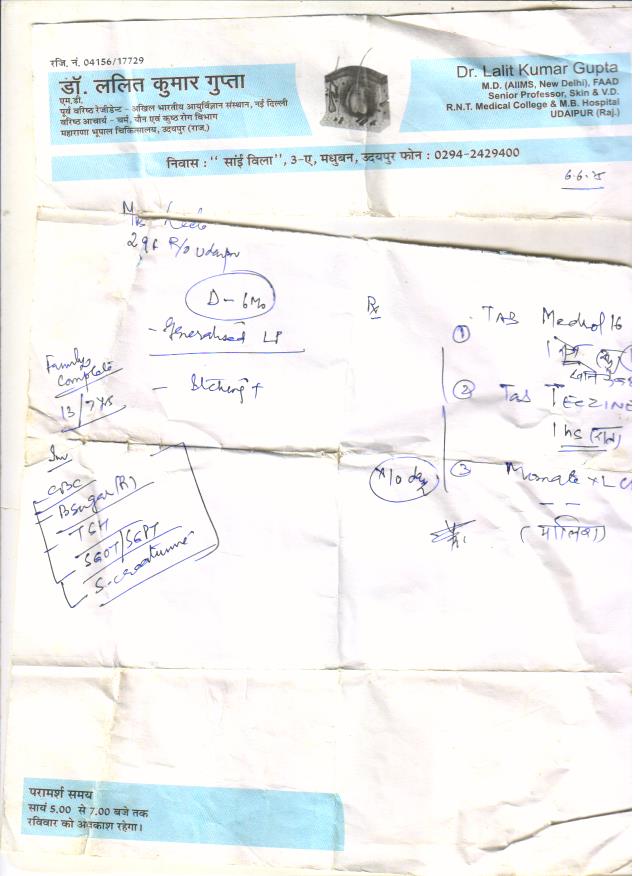 रजि. नं. 04156/17729
डॉ. ललित कुमार गुप्ता
एम.डी.
पूर्व वरिष्ठ रेजीडेन्ट - अखिल भारतीय आयुर्विज्ञान संस्थान, नई दिल्ली
वरिष्ठ आचार्य - चर्म, यौन एवं कुष्ठ रोग विभाग
महाराणा भूपाल चिकित्सालय, उदयपुर (राज.)
Dr. Lalit Kumar Gupta
M.D. (AIIMS, New Delhi), FAAD
Senior Professor, Skin & V.D.
R.N.T. Medical College & M.B. Hospital
UDAIPUR (Raj.)
निवास : " सांई विला", 3-ए, मधुबन, उदयपुर फोन : 0294-2429400
R/o Udaipur
D - 6 Mo
- Generalised LP
- Itching +
Family
Complete
13/7 yrs
Inv
CBC
B sugar (R)
TSH
SGOT/SGPT
S. creatinine
Rx
① TAB Medrol 16
② Tab TECZINE
1 hs (रात)
x 10 days
③ Momate XL
(मालिश)
परामर्श समय
सायं 5.00 से 7.00 बजे तक
रविवार को अवकाश रहेगा।